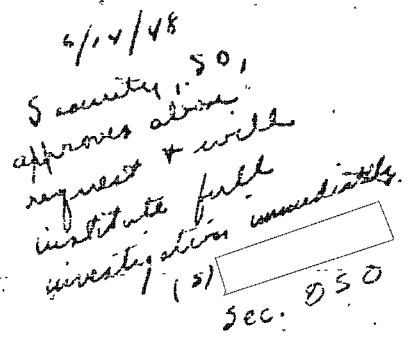 6/14/48
Security, SO,
approves above
request + will
institute full
investigation immediately.
(s)
Sec. OSO